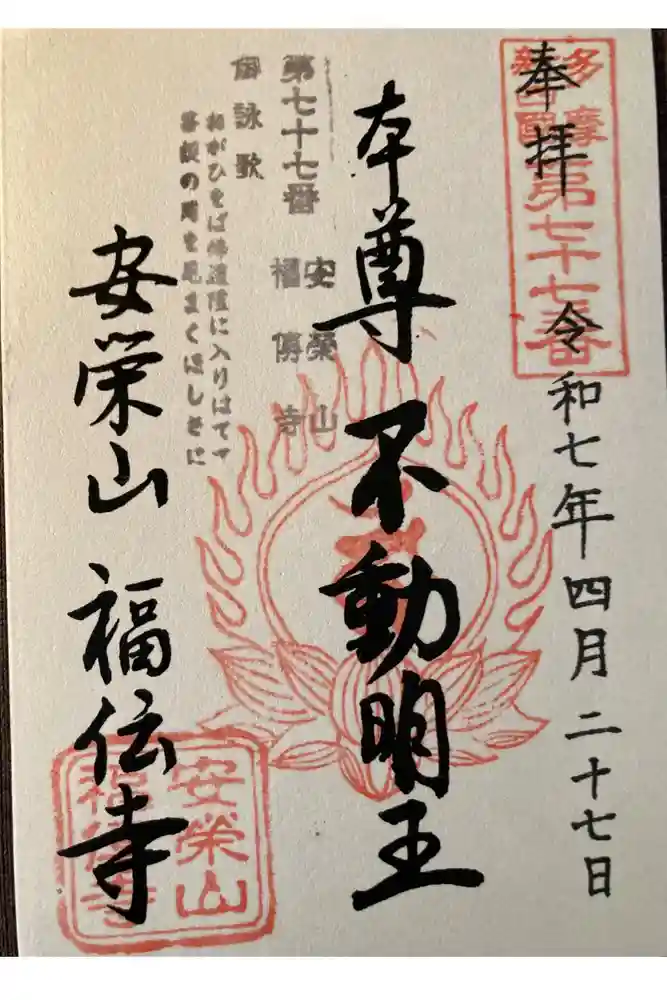 奉拝
令和七年四月二十七日
多摩
四国
第七十七番
本尊 不動明王
第七十七番
安榮山
福傳寺
御詠歌
ねがひをば佛道陸に入りはてて
菩提の月を見まくほしさに
安栄山 福伝寺
安榮山
福傳寺